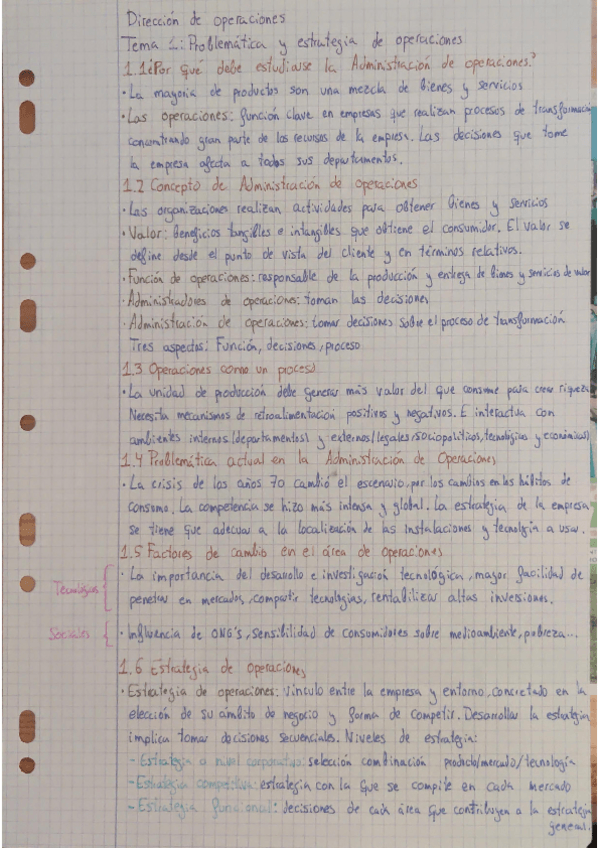 Dirección de operaciones
Tema 1: Problemática y estrategia de operaciones
1.1 ¿Por qué debe estudiarse la Administración de operaciones?
· La mayoria de productos son una mezcla de bienes y servicios
· Las operaciones: función clave en empresas que realizan procesos de transformación
concentrando gran parte de los recursos de la empresa. Las decisiones que tome
la empresa afecta a todos sus departamentos.
1.2 Concepto de Administración de operaciones
· Las organizaciones realizan actividades para obtener bienes y servicios
· Valor: Beneficios tangibles e intangibles que obtiene el consumidor. El valor se
define desde el punto de vista del cliente y en términos relativos.
· Función de operaciones: responsable de la producción y entrega de bienes y servicios de valor
· Administradores de operaciones: toman las decisiones
· Administración de operaciones: tomar decisiones sobre el proceso de transformación
Tres aspectos: Función, decisiones, proceso
1.3 Operaciones como un proceso
· La unidad de producción debe generar más valor del que consume para crear riqueza
Necesita mecanismos de retroalimentación positivos y negativos. E interactua con
ambientes internos (departamentos) y externos (legales, sociopoliticos, tecnológicas y económicas)
1.4 Problemática actual en la Administración de Operaciones
· La crisis de los años 70 cambió el escenario, por los cambios en los hábitos de
consumo. La competencia se hizo más intensa y global. La estrategia de la empresa
se tiene que adecuar a la localización de las instalaciones y tecnolgia a usar.
1.5 Factores de cambio en el área de operaciones
Tecnológicos { · La importancia del desarrollo e investigación tecnológica, mayor facilidad de
penetrar en mercados, compartir tecnologías, rentabilizar altas inversiones.
Sociales { · Influencia de ONG's, sensibilidad de consumidores sobre medioambiente, pobreza...
1.6 Estrategia de Operaciones
· Estrategia de operaciones: vinculo entre la empresa y entorno, concretado en la
elección de su ámbito de negocio y forma de competir. Desarrollar la estrategia
implica tomar decisiones secuenciales. Niveles de estrategia:
- Estrategia a nivel corporativo: selección combinación producto/mercado/tecnología
- Estrategia competitiva: estrategia con la que se compite en cada mercado
- Estrategia funcional: decisiones de cada área que contribuyen a la estrategia
general.